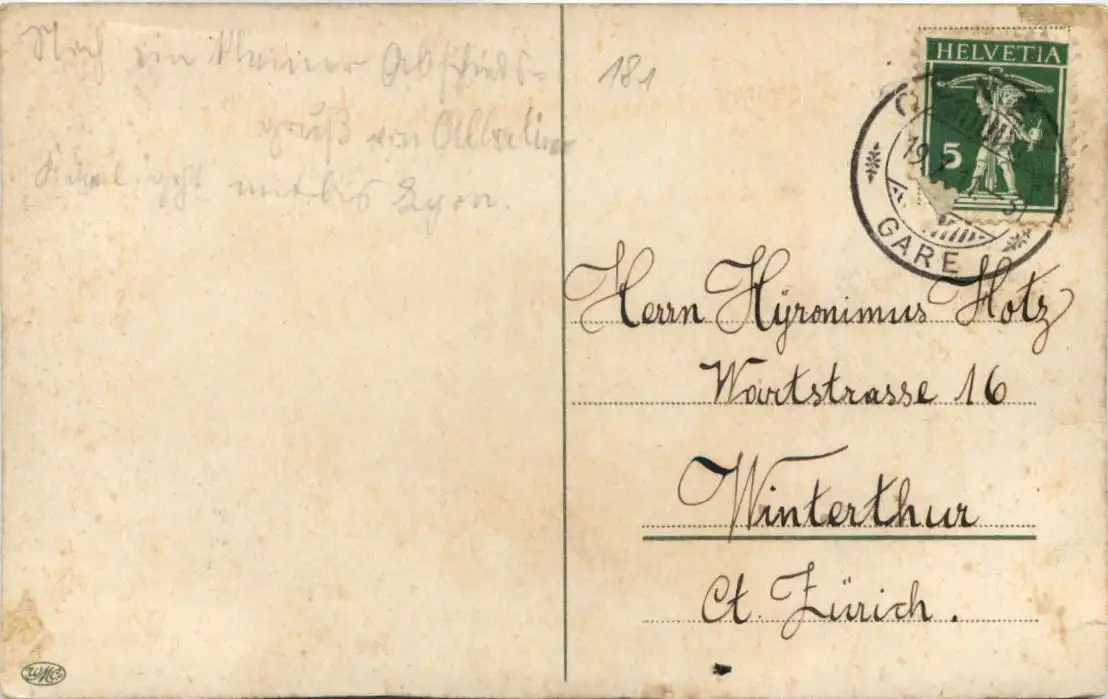 Noch ein kleiner Abschieds-
gruß von
mit bis Lyon.
181
HELVETIA
5
GARE
Herrn Hÿronimus Hotz
Wartstrasse 16
Winterthur
Ct. Zürich.